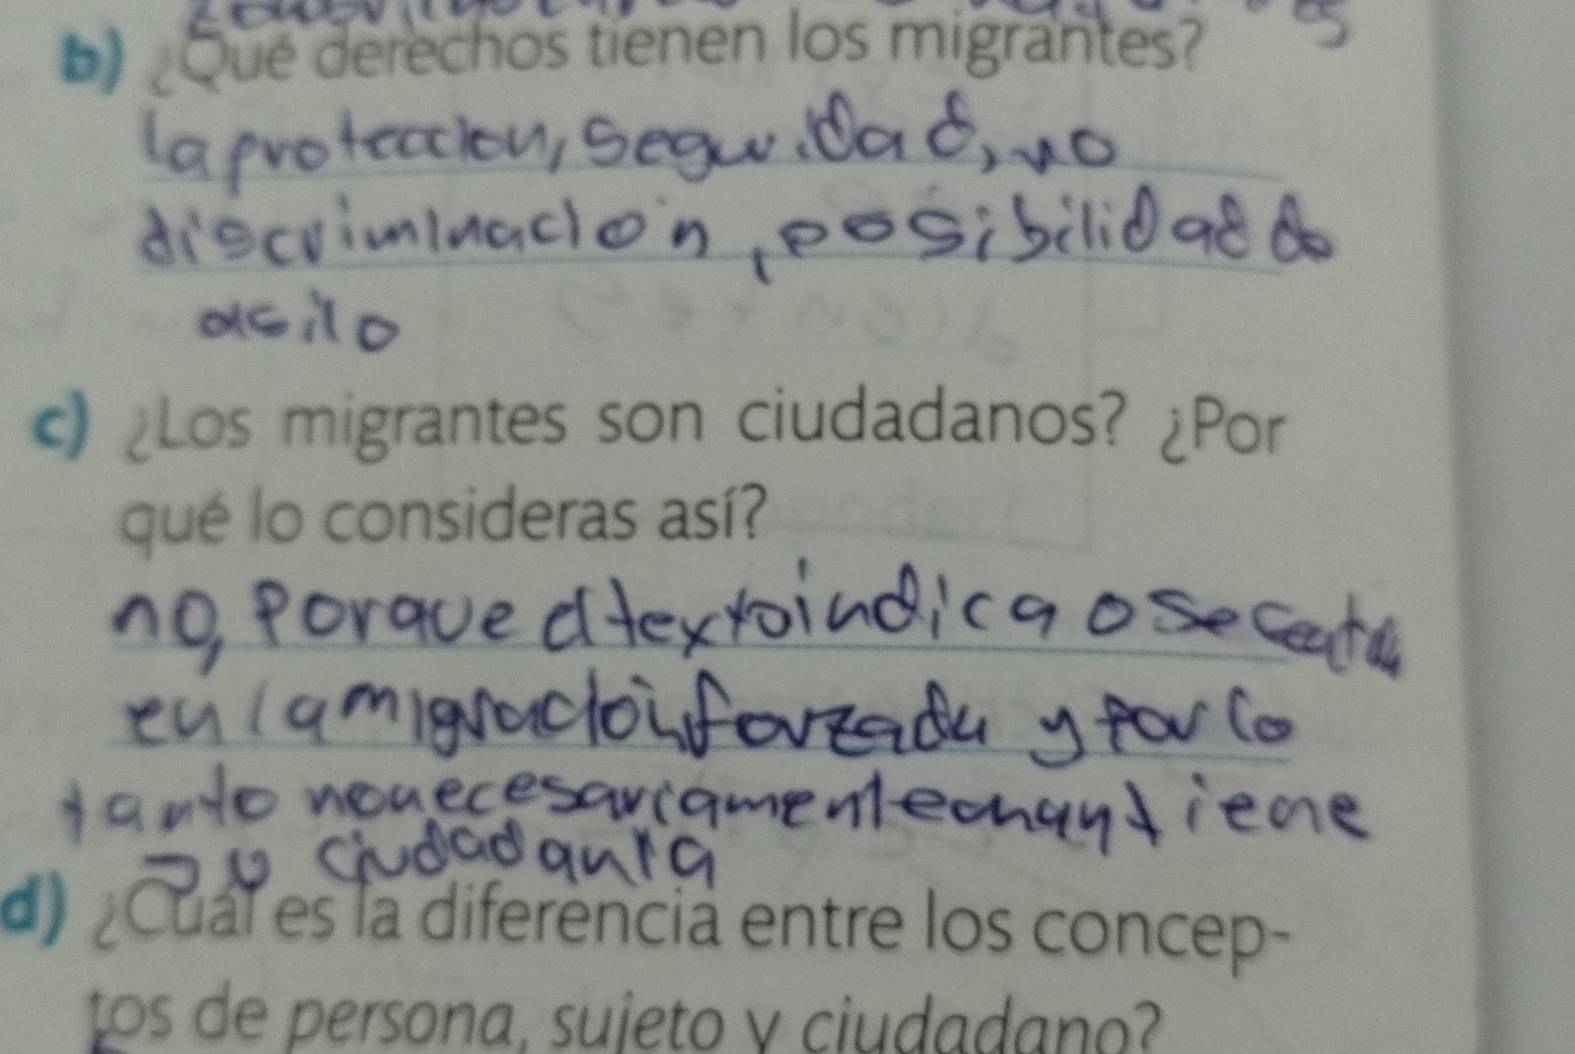 b) ¿Qué derechos tienen los migrantes?
la proteccion, seguridad, no
discriminación, posibilidad de
asilo
c) ¿Los migrantes son ciudadanos? ¿Por
qué lo consideras así?
no, porque el texto indica o se centra
en la migración forzada y por lo
tanto no necesariamente tiene
ciudadania
d) ¿Cuál es la diferencia entre los concep-
tos de persona, sujeto y ciudadano?